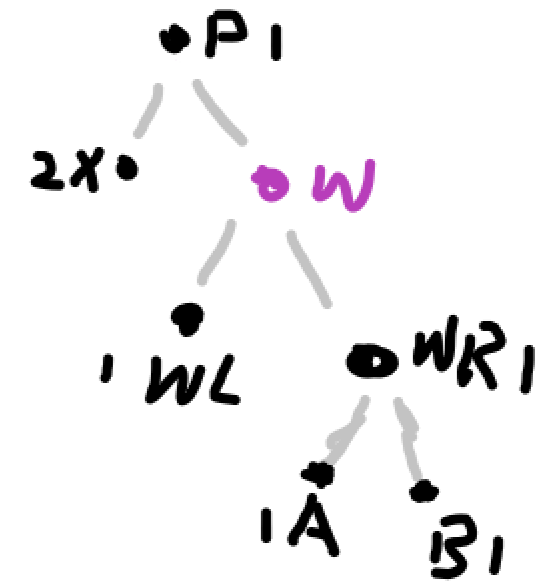 P 1
2 X
W
1 WL
WR 1
1 A
B 1